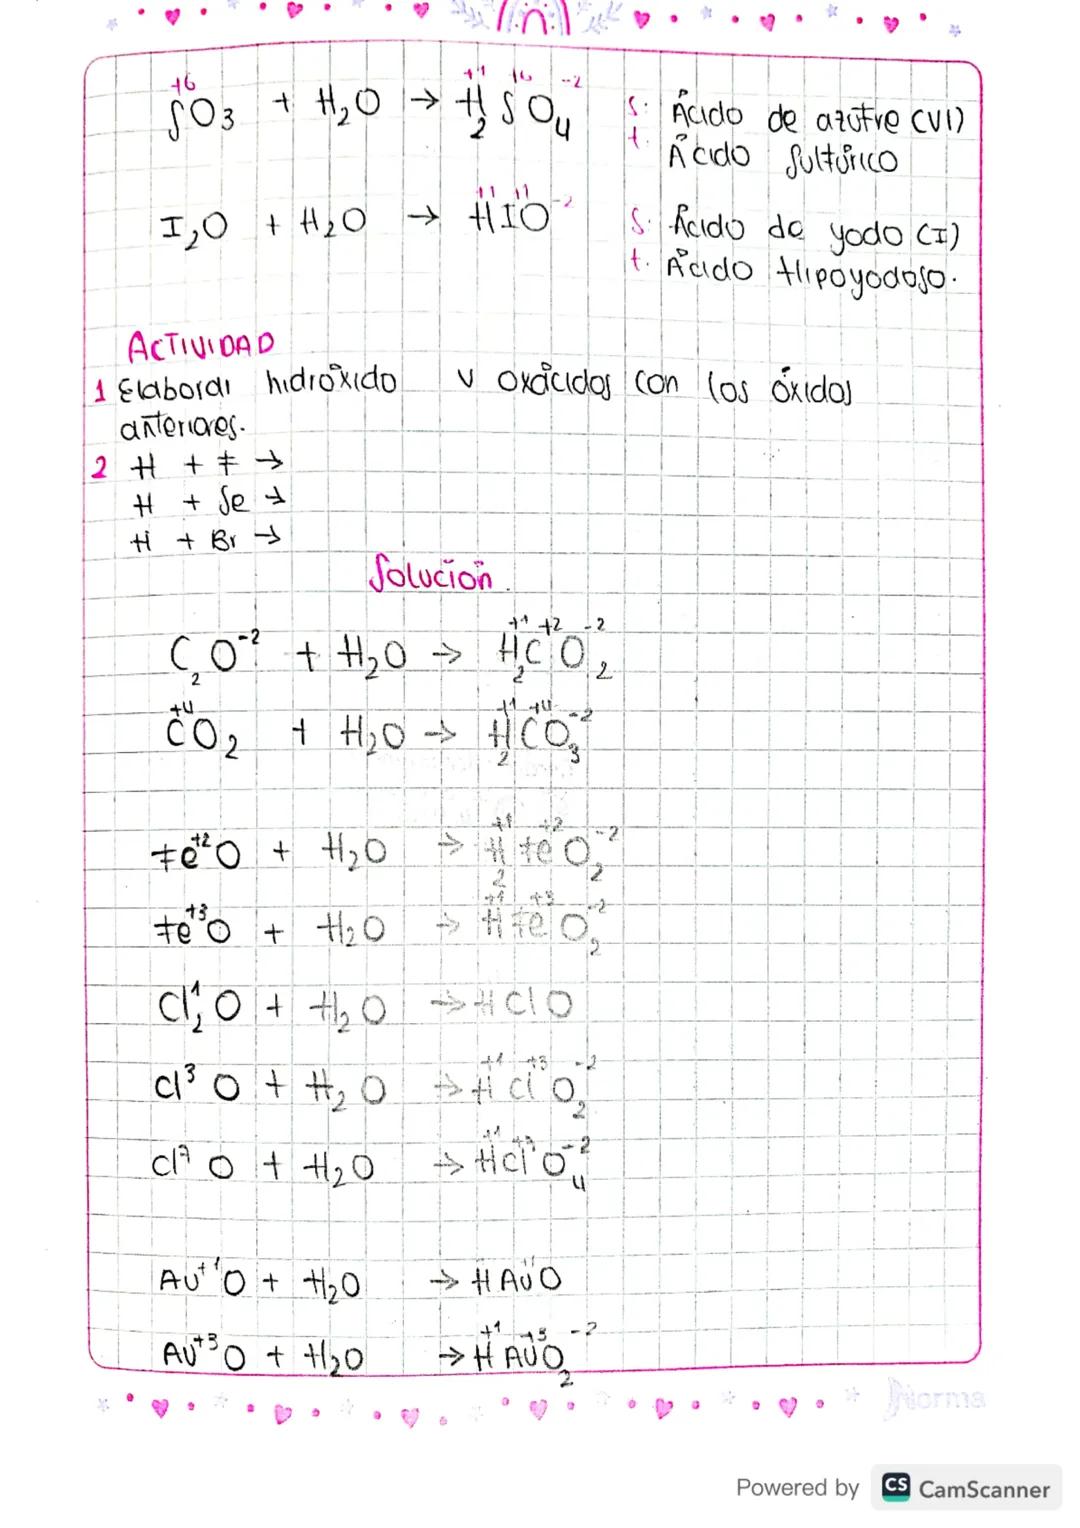 SO₃⁺⁶ + H₂O → H₂⁺¹S⁺⁶O₄⁻² S. Ácido de azufre (VI)
t. Ácido Sulfúrico
I₂O + H₂O → H⁺¹I⁺¹O⁻² S. Ácido de yodo (I)
t. Ácido Hipoyodoso.
ACTIVIDAD
1 Elaborar hidróxido y oxácidos con los óxidos
anteriores.
2 H + F →
H + Se →
H + Br →
Solución.
C₂O⁻² + H₂O → H₂⁺¹C⁺²O₂⁻²
C⁺⁴O₂ + H₂O → H₂⁺¹C⁺⁴O₃⁻²
Fe⁺²O + H₂O → H₂⁺¹Fe⁺²O₂⁻²
Fe⁺³O + H₂O → H⁺¹Fe⁺³O₂⁻²
Cl₂¹O + H₂O → HClO
Cl³O + H₂O → H⁺¹Cl⁺³O₂⁻²
Cl⁷O + H₂O → H⁺¹Cl⁺⁷O₄⁻²
Au⁺¹O + H₂O → HAuO
Au⁺³O + H₂O → H⁺¹Au⁺³O₂⁻²
Norma
Powered by CS CamScanner